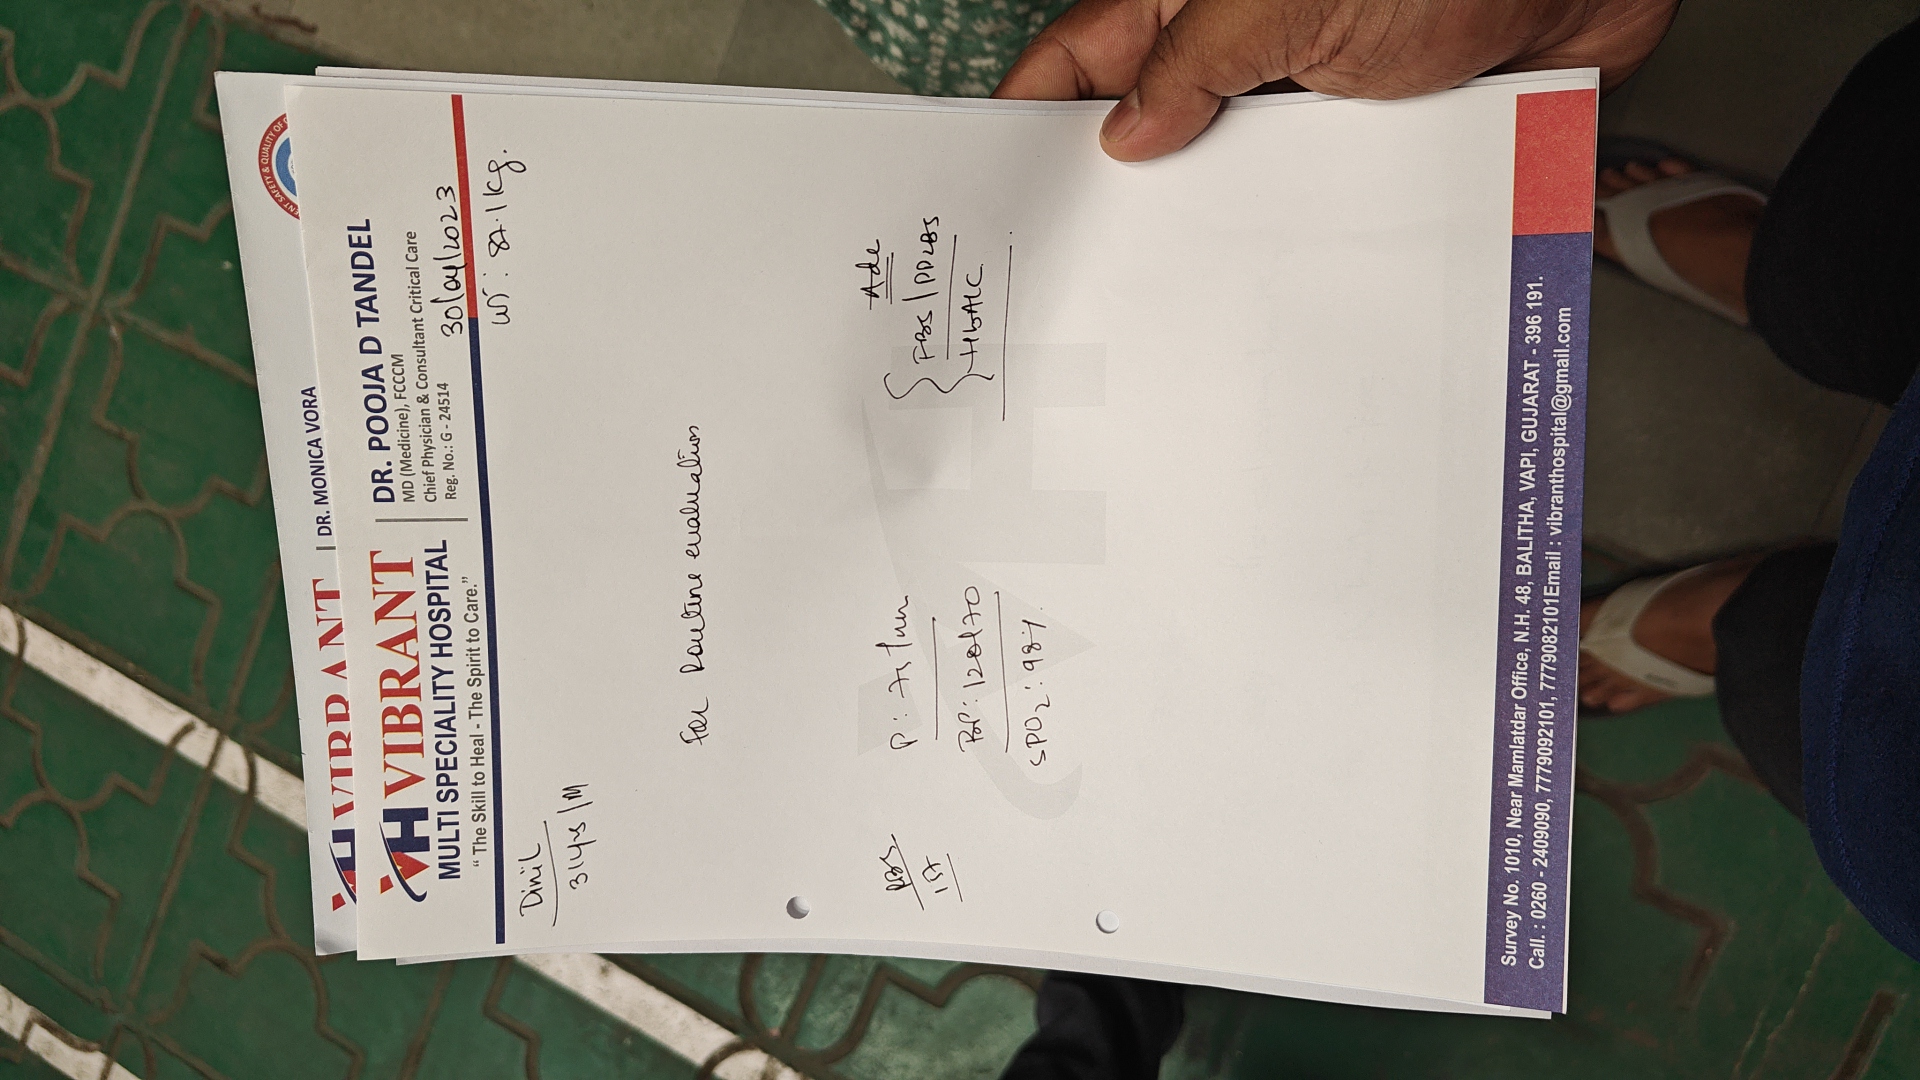 ENT SAFETY & QUALITY OF
VIBRANT
DR. MONICA VORA
VH VIBRANT
MULTI SPECIALITY HOSPITAL
“ The Skill to Heal - The Spirit to Care.”
DR. POOJA D TANDEL
MD (Medicine), FCCCM
Chief Physician & Consultant Critical Care
Reg. No.: G - 24514
30/04/2023
wt: 87.1 kg.
Dinil
31yrs/M
For Routine evaluation
RBS
P:
BP: 120/70
SPO2: 98%
Ade
FBS/PP2BS
HbA1C
Survey No. 1010, Near Mamlatdar Office, N.H. 48, BALITHA, VAPI, GUJARAT - 396 191.
Call. : 0260 - 2409090, 7779092101, 7779082101Email : vibranthospital@gmail.com